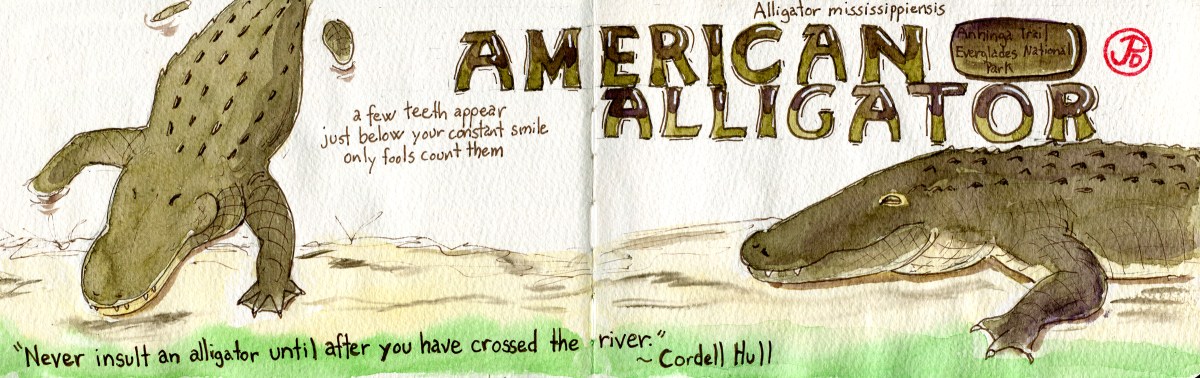 Alligator mississippiensis
AMERICAN
ALLIGATOR
Anhinga Trail
Everglades National
Park
JPD
a few teeth appear
just below your constant smile
only fools count them
"Never insult an alligator until after you have crossed the river."
~ Cordell Hull